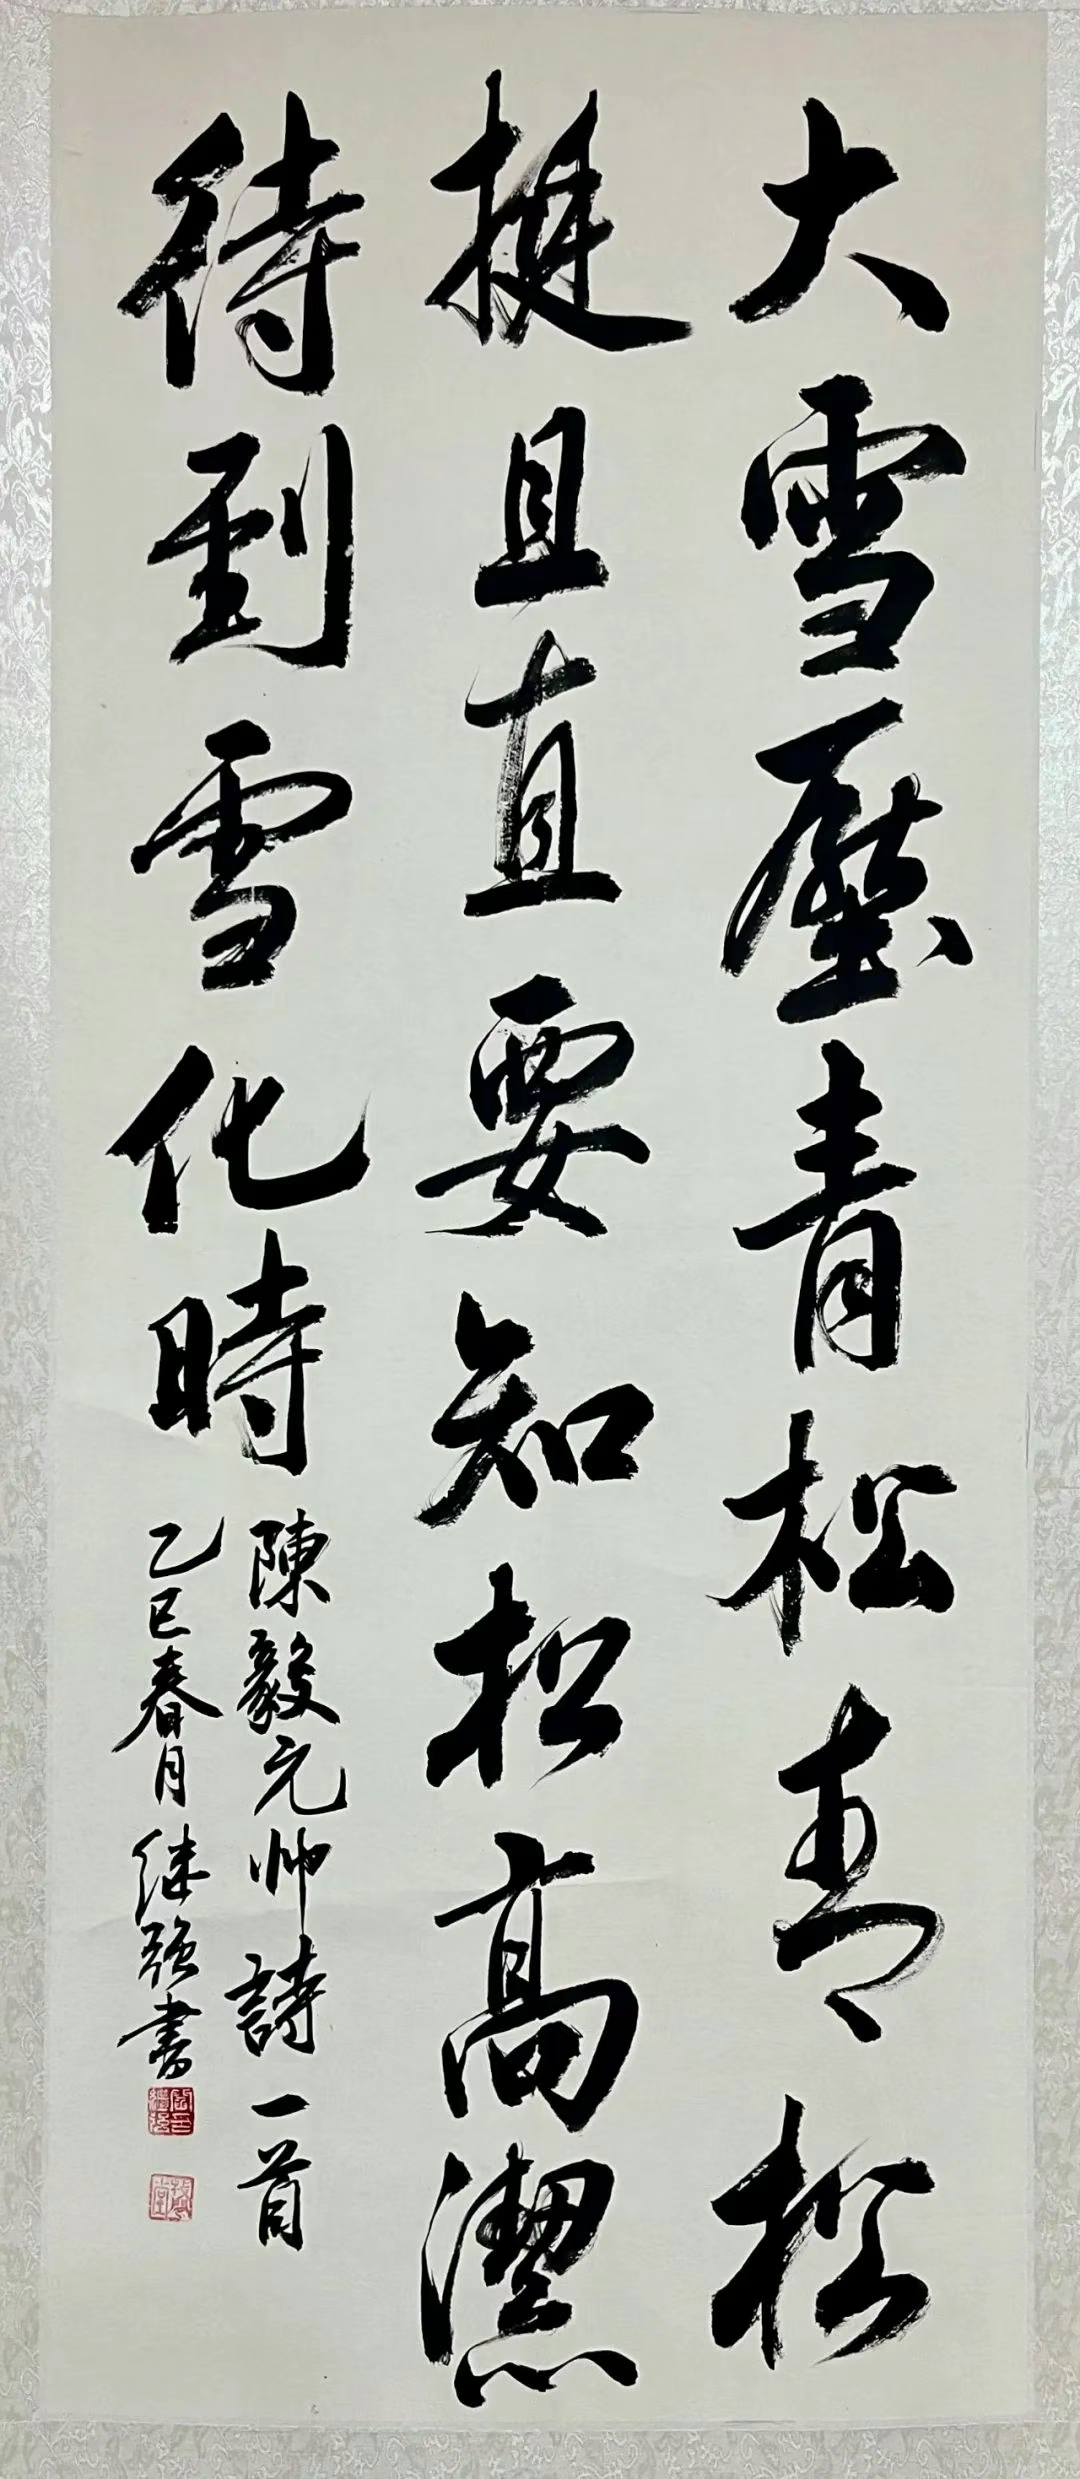 大雪壓青松青松
挺且直要知松高潔
待到雪化時
陳毅元帅詩一首
乙巳春月继强書